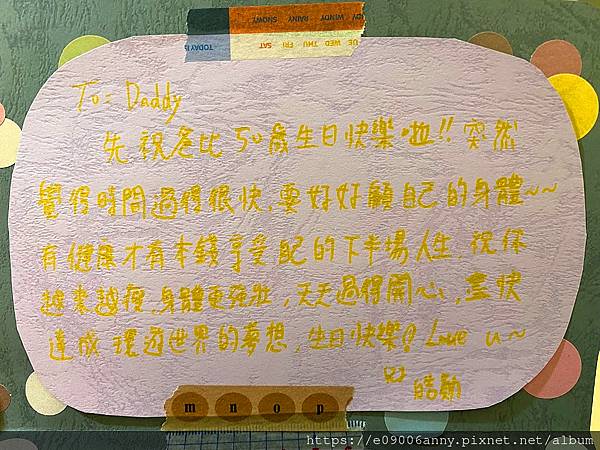 DY WINDY RAINY SNOWY
UE WED THU FRI SAT
TODAY IS
To: Daddy
先祝爸比50歲生日快樂啦!! 突然
覺得時間過得很快,要好好顧自己的身體~~
有健康才有本錢享受配的下半場人生,祝你
越來越瘦,身體更強壯,天天過得開心,盡快
達成環遊世界的夢想,生日快樂! Love u~
皓勛
m n o p
https://e09006anny.pixnet.net/album